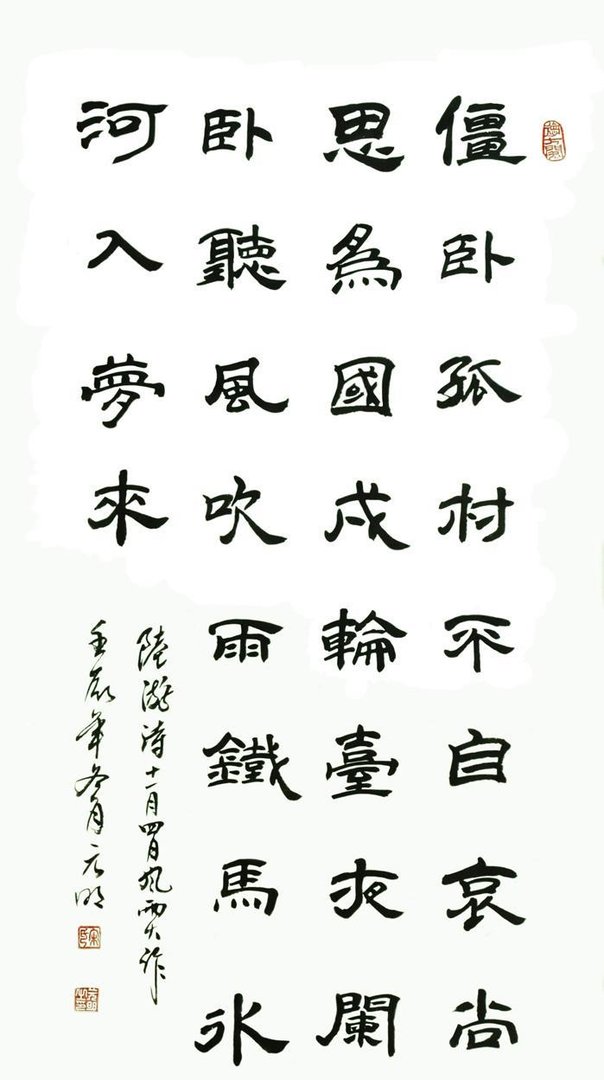 僵卧孤村不自哀尚
思為國戍輪臺夜闌
卧聽風吹雨鐵馬冰
河入夢來
陸游詩十一月四日風雨大作
壬辰年冬月元明